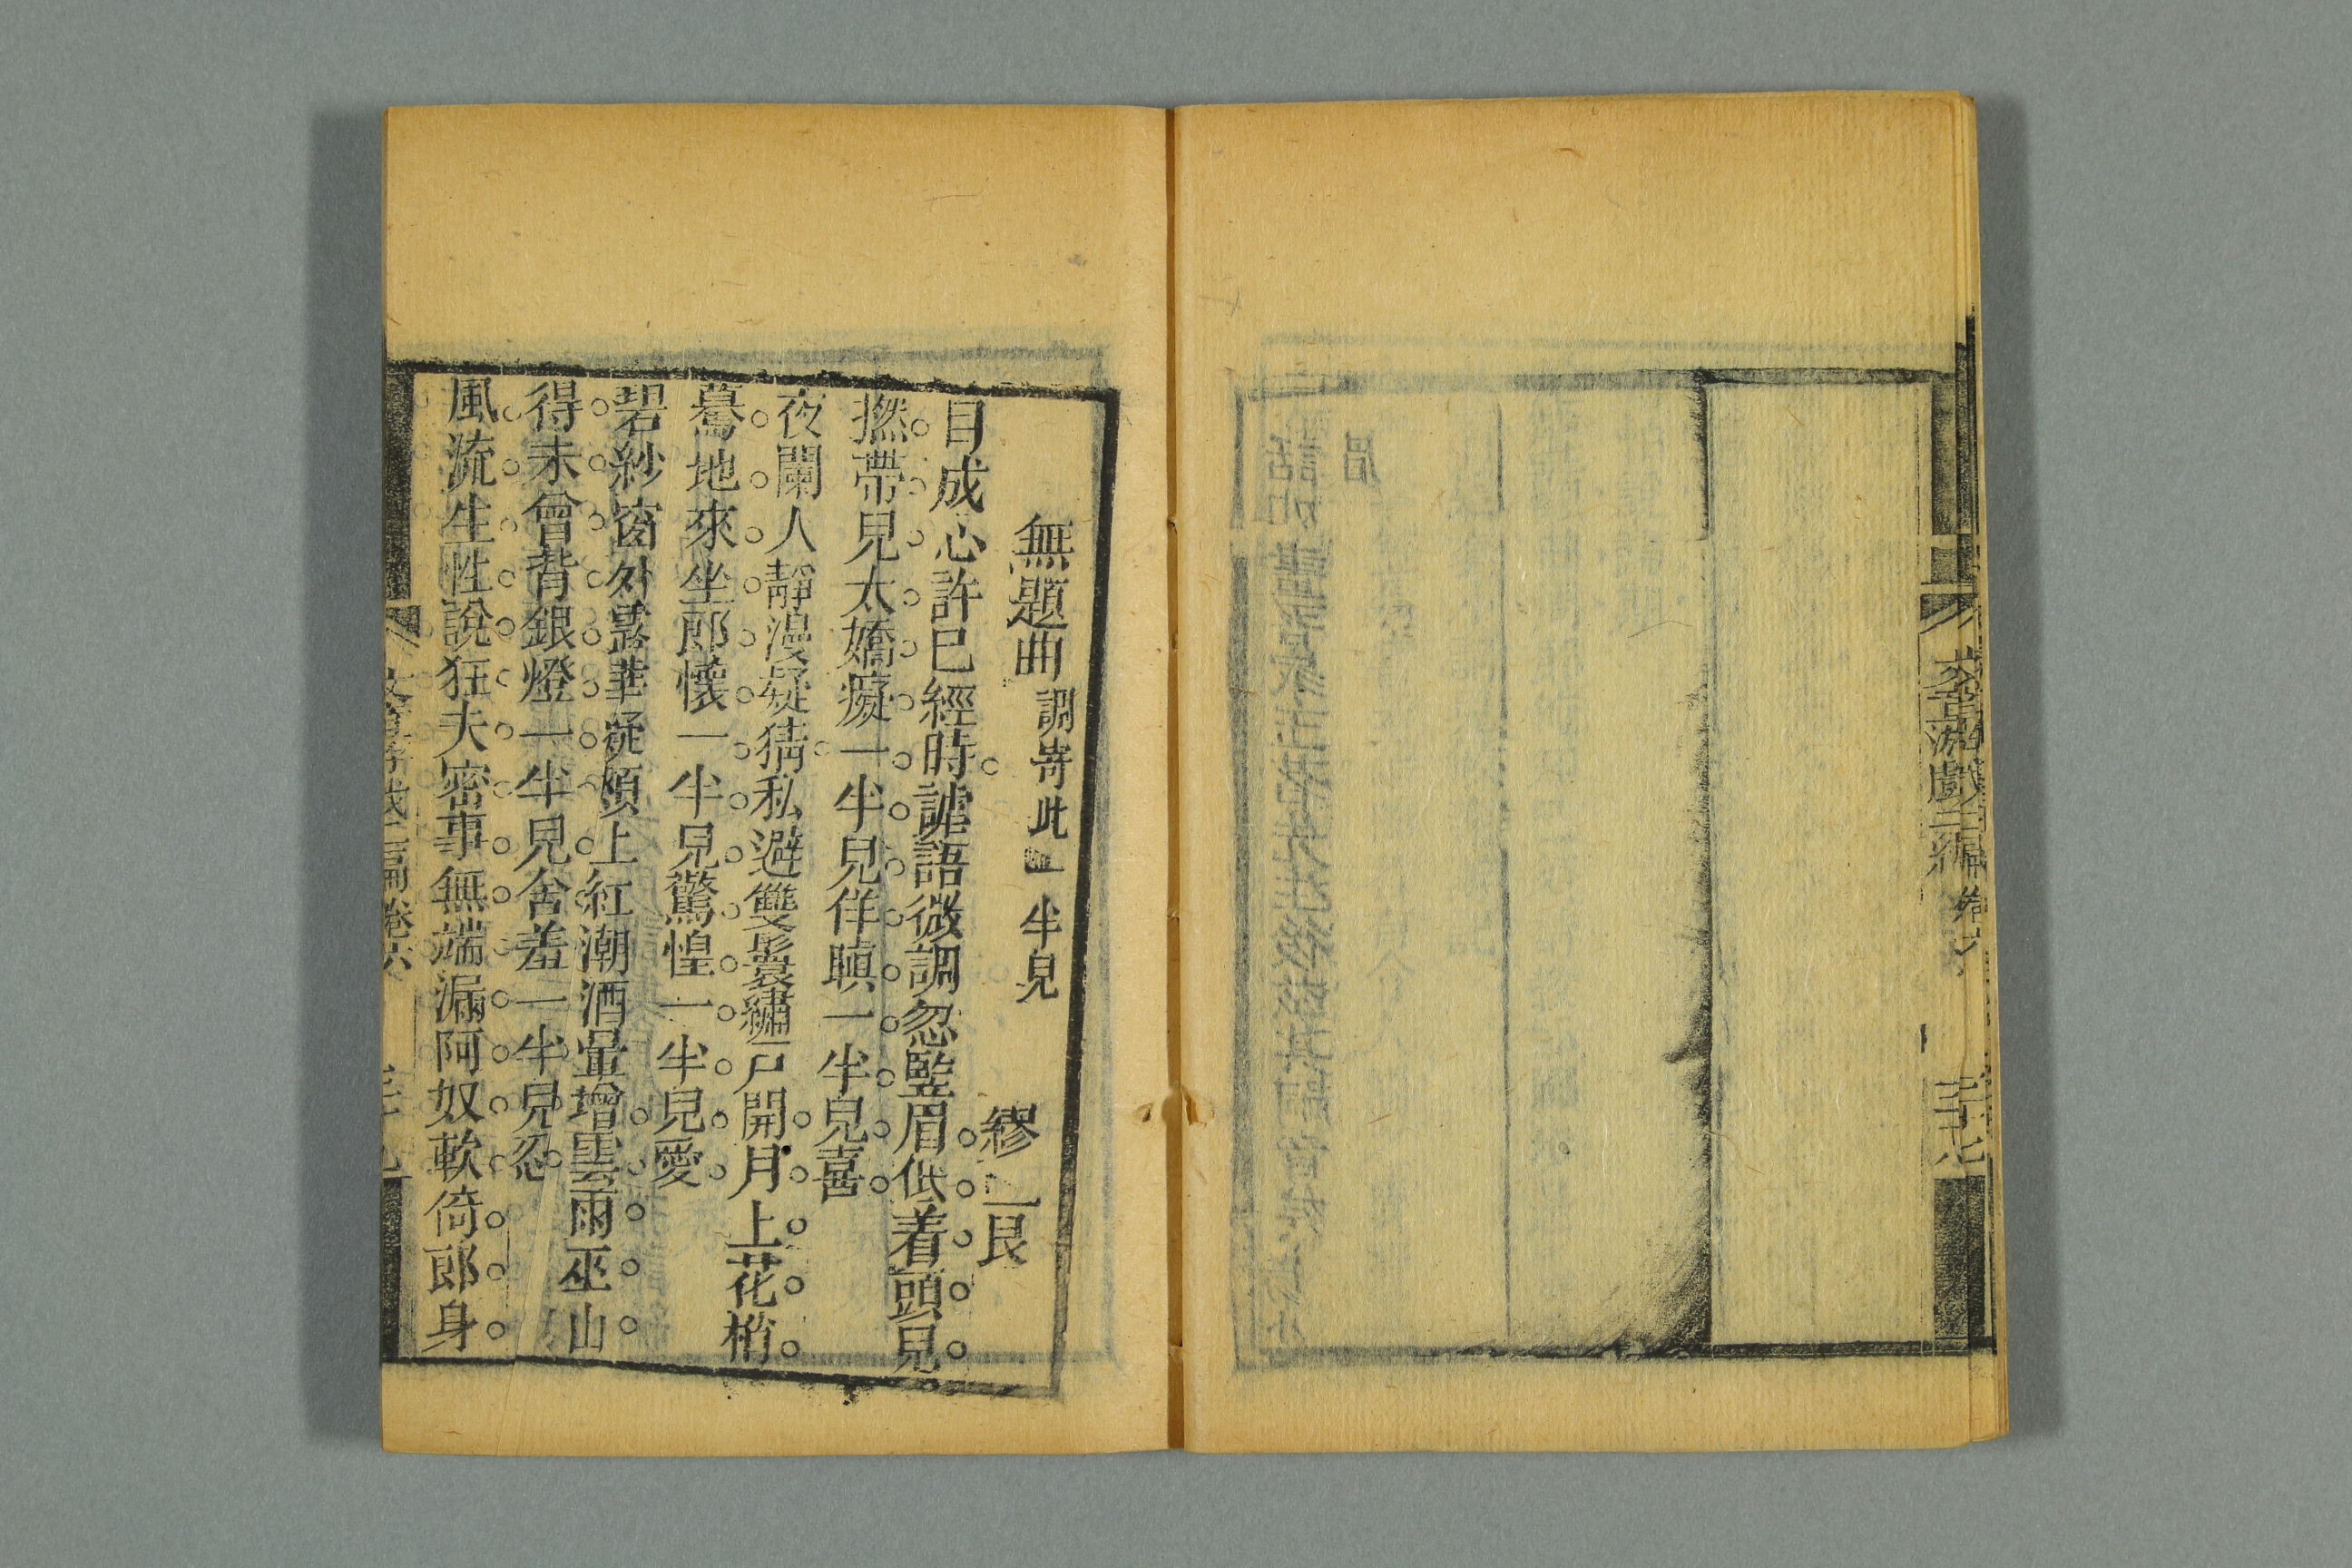 文章游戲二編 卷六 三十七
無題曲 調寄此一半兒
繆艮
目成心許已經時謔語微調忽豎眉低着頭兒
撚帶見太嬌癡一半兒佯嗔一半兒喜
夜闌人靜漫疑猜私避雙鬟繡戸開月上花梢
驀地來坐郎懷一半兒驚惶一半兒愛
碧紗窗外露華凝頰上紅潮酒暈增雲雨巫山
得未曾背銀燈一半兒含羞一半兒忍
風流生性說狂夫密事無端漏阿奴軟倚郎身